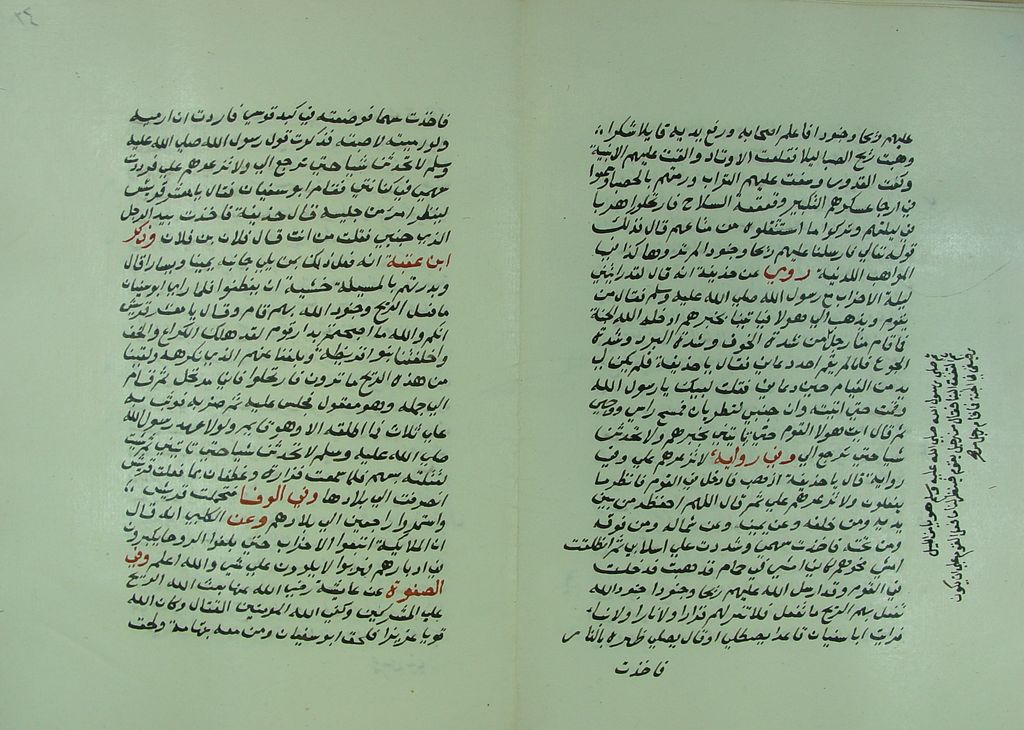 عليهم ريحا وجنودا فاعلم اصحابه ورفع يديه قايلا شكرا
وهبت ريح الصبا ليلا فقلعت الاوتاد والقت عليهم الابنية
وكفت القدور وسفت عليهم التراب ورمتهم بالحصا وسمعوا
في ارجا عسكرهم التكبير وقعقعة السلاح فارتحلوا هربا
في ليلتهم وتركوا ما استثقلوه من متاعهم قال فذلك
قوله تعالي فارسلنا عليهم ريحا وجنودا لم تروها كذا في
المواهب اللدنية روي عن حذيفة انه قال لقد رايتني
ليلة الاحزاب مع رسول الله صلي الله عليه وسلم فقال من
يقوم ويذهب الي هولا فياتينا بخبرهم ادخله الله الجنة
فاقام منا رجل من شدة الخوف وشدة البرد وشدة
الجوع فلما لم يقم احد دعاني فقال يا حذيفة فلم يكن لي
بد من القيام حين دعاني فقلت لبيك يا رسول الله
وقمت حتي اتيته وان جنبي لتضطربان فمسح راسي ووجهي
ثم قال ايت هولا القوم حتي تاتيني بخبرهم ولا تحدثن
شيا حتي ترجع الي وفي رواية لا تذعرهم علي وفي
رواية قال يا حذيفة اذهب فادخل في القوم فانظر ما
يفعلون ولا تذعرهم علي ثم قال اللهم احفظه من بين
يديه ومن خلفه وعن يمينه وعن شماله ومن فوقه
ومن تحته فاخذت سهمي وشددت علي اسلابي ثم انطلقت
امشي نحوهم كاني امشي في حمام فذهبت فدخلت
في القوم وقد ارسل الله عليهم ريحا وجنودا وجنود الله
تفعل بهم الريح ما تفعل فلا تقر لهم قدرا ولا نارا ولا بناء
فرايت ابا سفيان قاعدا يصطلي او قال يصلي ظهره بالنار
فاخذت
ثم صلي رسول الله صلي الله عليه وسلم هويا من الليل
ثم التفت الينا فقال من رجل يقوم فينظر لنا ما فعل القوم علي ان يكون
فاخذت سهما فوضعته في كبد قوسي فاردت ان ارميه
ولو رميته لاصبته فذكرت قول رسول الله صلي الله عليه
وسلم لا تحدثن شيا حتي ترجع الي ولا تذعرهم علي فرددت
سهمي في كنانتي فقام ابو سفيان فقال يا معشر قريش
لينظر امرؤ من جليسه قال حذيفة فاخذت بيد الرجل
الذي جنبي فقلت من انت قال فلان بن فلان وذكر
ابن عقبة انه فعل ذلك بمن يلي جانبه يمينا ويسارا قال
وبدرتهم بالمسيلة خشية ان يفطنوا فلما راي ابو سفيان
ما فعل الريح وجنود الله بهم قام وقال يا معشر قريش
انكم والله ما اصبحتم بدار قوم لقد هلك الكراع والخف
واخلفتنا بنو قريظة وبلغنا عنهم الذي نكرهه ولقينا
من هذه الريح ما ترون فارتحلوا فاني مرتحل ثم قام
الي جمله وهو معقول فجلس عليه ثم ضربه فوثب به
علي ثلاث فما اطلقه الا وهو قايم ولولا عهد رسول الله
صلي الله عليه وسلم لا تحدثن شيا حتي تاتيني ثم شيت
لقتلته بسهم فلما سمعت فزارة وغطفان بما فعلت قريش
انصرفت الي بلادها وفي الوفا فتحملت قريش
واستمروا راجعين الي بلادهم وعن الكلبي انه قال
ان الملايكة اتبعوا الاحزاب حتي بلغوا الروحا يكبرون
في ادبارهم فهربوا لا يلوون علي شي والله اعلم وفي
الصفوة عن عايشة رضي الله عنها بعث الله الريح
علي المشركين وكفي الله المومنين القتال وكان الله
قويا عزيزا فلحق ابو سفيان ومن معه بتهامة ولحق